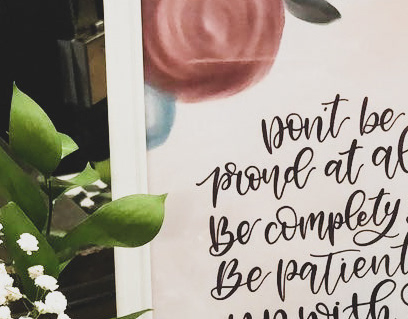 Don't be
proud at al
Be complety
Be patient
up with